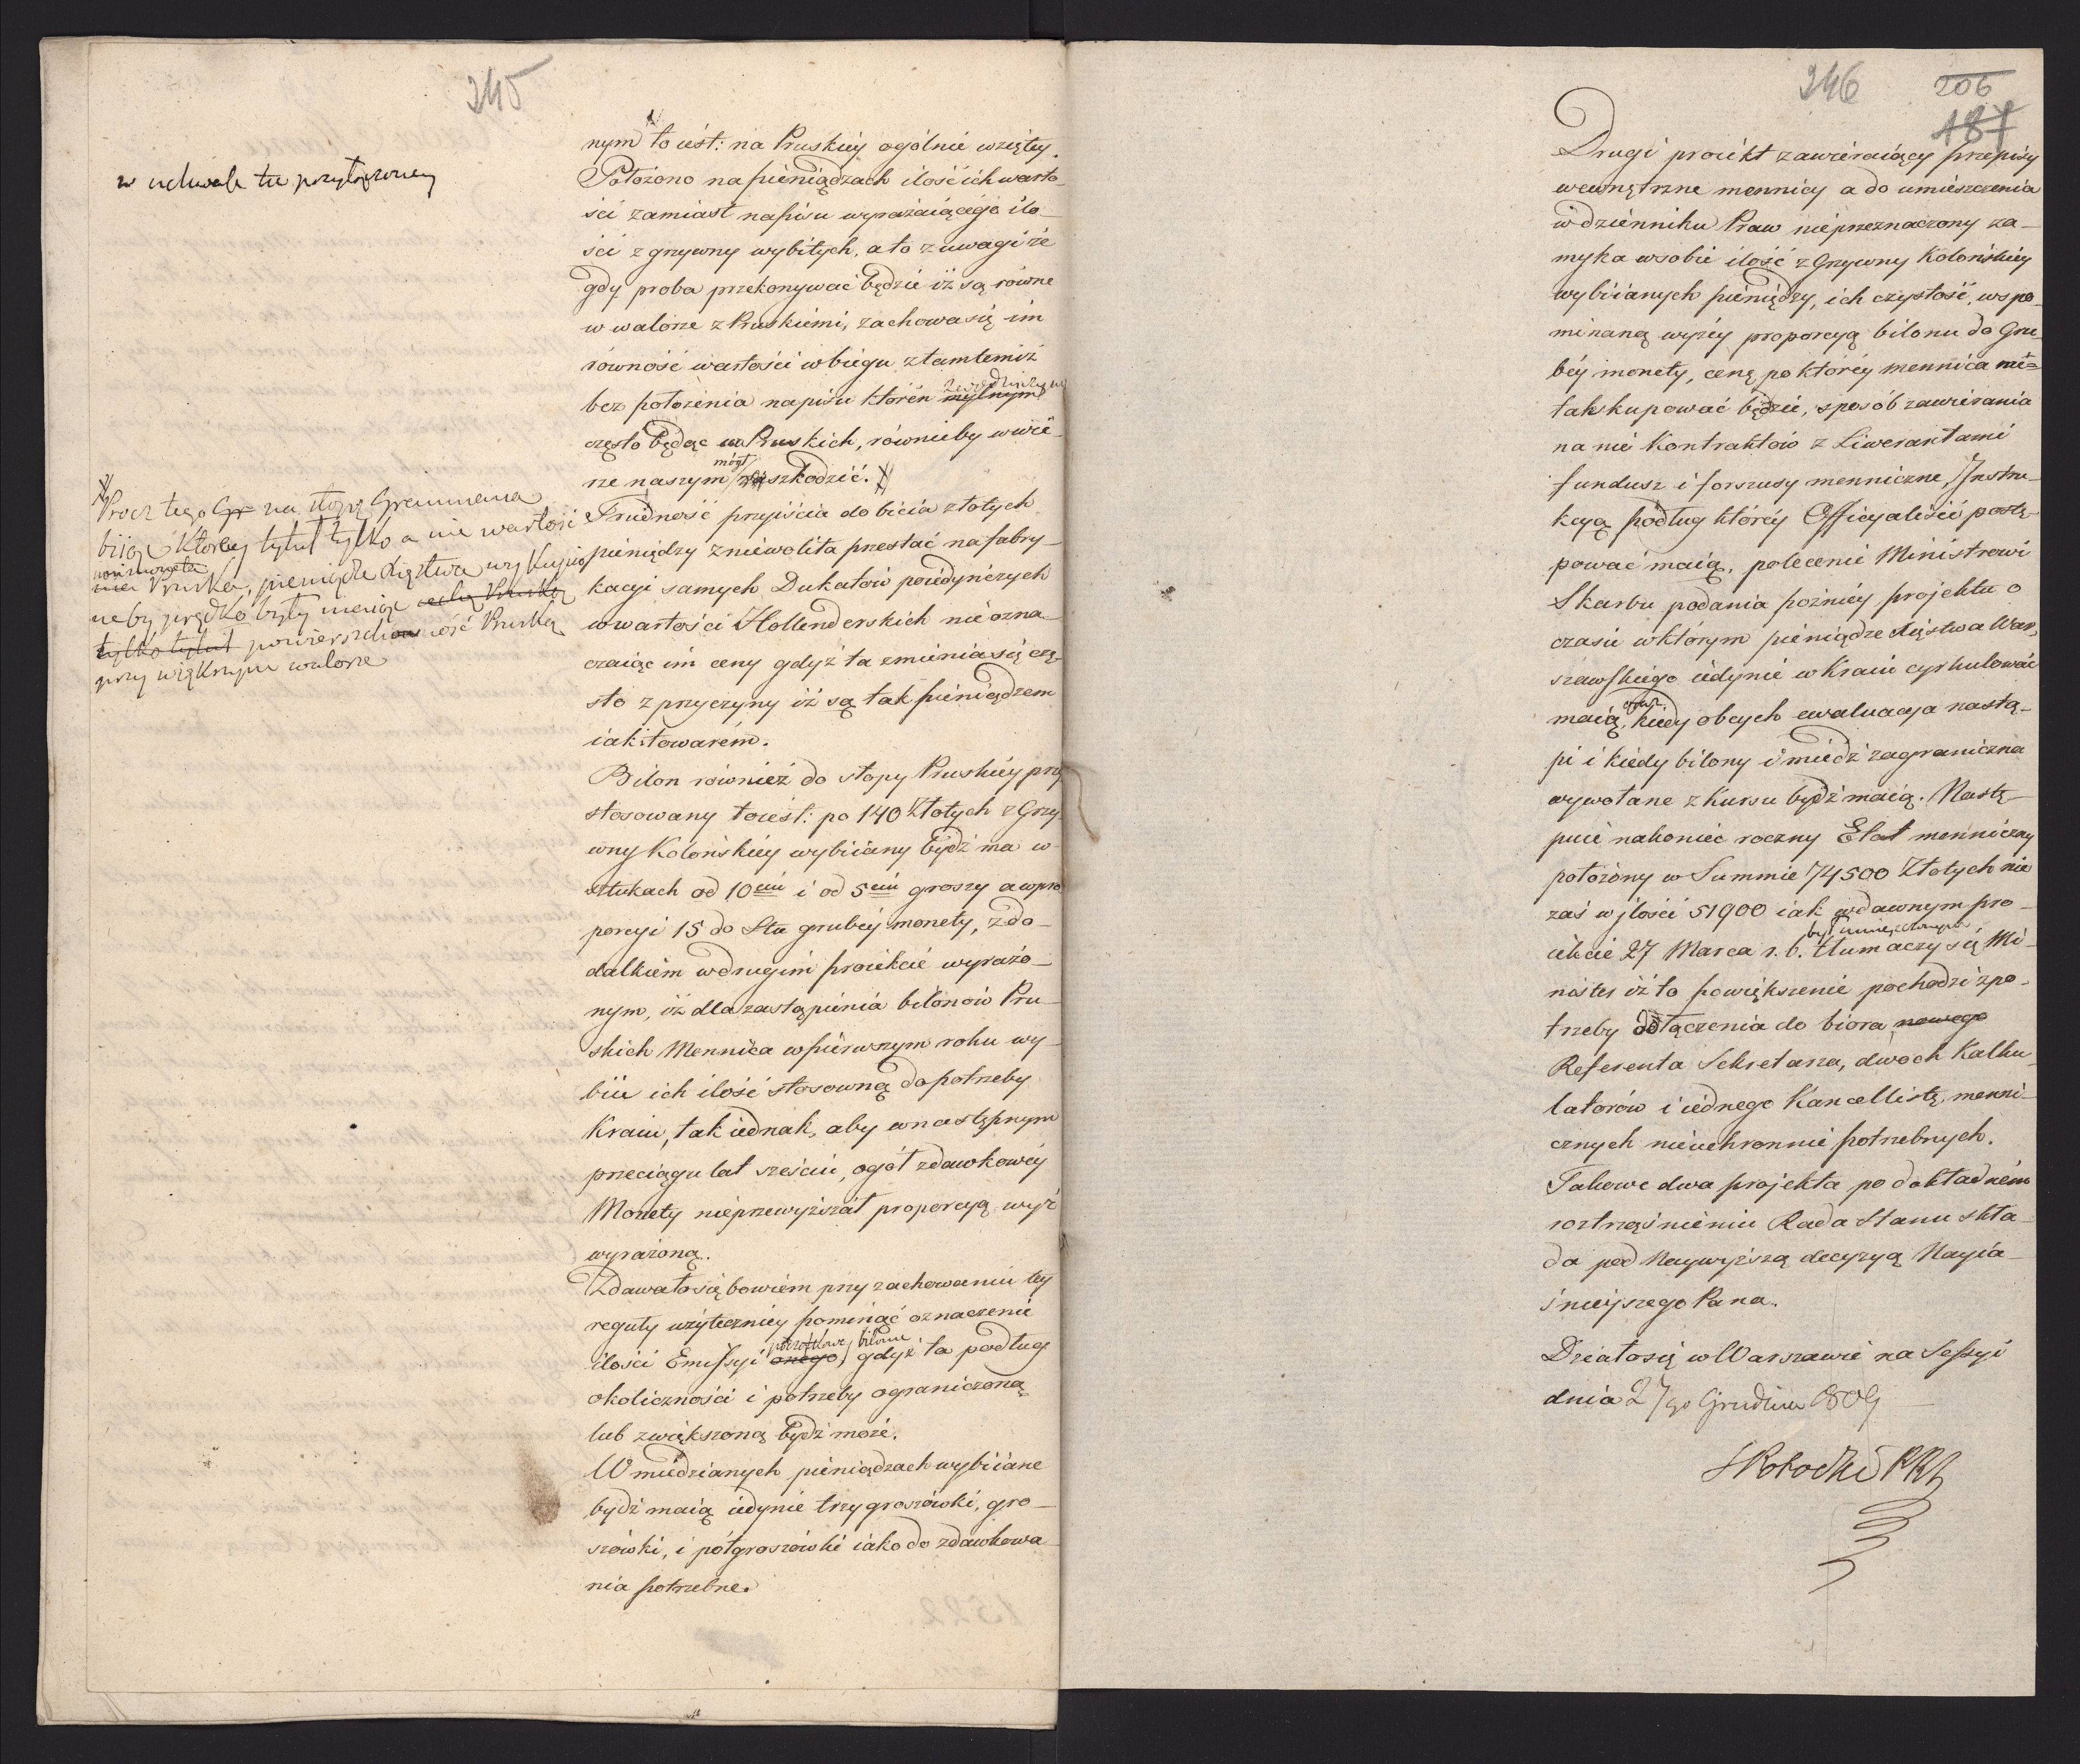 245
w uchwale tu przyłączoney
nym to iest: na Pruskiey ogólnie wziętey.
Położono na pieniądzach ilość ich warto-
ści zamiast napisu wyrażaiącego ilo-
ści z grzywny wybitych, a to z uwagi że
gdy proba przekonywać będzie iż są równe
w walorze z Pruskiemi, zachowa się im
równość wartości w biegu z tamtemiż
bez położenia napisu któren zwodniczym mylnym
często będąc w Pruskich, równieby w wie-
rze naszym mógł zaszkodzić.
Procz tego Gr na stopę Graumana
biiąc ktorey tytuł tylko a nie wartość
nie Pruska, pieniądze Xięstwa wykupio
neby prędko były maiąc cechę Pruską
tylko tytuł powierzchowność Pruską
przy większym walorze
Trudność przyiścia do bicia złotych
pieniędzy zniewoliła przestać na fabry-
kacyi samych Dukatów poiedyńczych
w wartości Hollenderskich nie ozna-
czaiąc im ceny gdyż ta zmienia się czę-
sto z przyczyny iż są tak pieniądzem
iak towarem.
Bilon również do stopy Pruskiey przy
stosowany to iest: po 140 Złotych z Grzy
wny Kolońskiey wybiiany bydź ma w
sztukach od 10ciu i od 5ciu groszy a w pro
porcyi 15 do Stu grubey monety, z do-
datkiem w drugim proiekcie wyrażo-
nym, iż dla zastąpienia bilonów Pru-
skich Mennica w pierwszym roku wy-
biie ich ilość stosowną do potrzeby
Kraiu, tak iednak, aby w następnym
przeciągu lat sześciu, ogół zdawkowey
Monety nieprzewyższał proporcyą wyż
wyrażoną.
Zdawało się bowiem przy zachowaniu tey
reguły użyteczniey pominąć oznaczenie
ilości Emissyi początkowey bilonu onego, gdyż ta podług
okoliczności i potrzeby ograniczoną
lub zwiększoną bydź może.
W miedzianych pieniądzach wybiiane
bydź maią iedynie trzygroszówki, gro-
szówki, i półgroszówki iako do zdawkowa-
nia potrzebne.
246
206
187
Drugi proiekt zawieraiący przepisy
wewnętrzne mennicy a do umieszczenia
w dzienniku Praw nieprzeznaczony za-
myka w sobie ilość z Grzywny Kolońskiey
wybiianych pieniędzy, ich czystość, wspo-
minaną wyżey proporcyą bilonu do Gru-
bey monety, cenę po którey mennica me-
tal skupować będzie, sposób zawierania
na nie Kontraktow z Liwerantami
fundusz i forszusy menniczne, Instru-
kcyą podług którey Officyaliści postę-
pować maią, polecenie Ministrowi
Skarbu podania pożniey projektu o
czasie w którym pieniądze Xięstwa War-
szawskiego iedynie w Kraiu cyrkulować
maią, kiedy obcych ewaluacya nastą-
pi i kiedy bilony i miedź zagraniczna
wywołane z kursu bydź maią. Nastę-
puie nakoniec roczny Etat menniczny
położony w Summie 74500 Złotych nie
zaś w ilości 51900 iak w dawnym pro-
iekcie 27 Marca r. b. był umieszczonym tłumaczy się Mi-
nister iż to powiększenie pochodzi z po-
trzeby dołączenia do biora nowego
Referenta Sekretarza, dwóch Kalku-
latorów i iednego Kancellistę menni-
cznych nieuchronnie potrzebnych.
Takowe dwa projekta po dokładnem
roztrząśnieniu Rada Stanu skła-
da pod Naywyższą decyzyą Nayia-
śnieyszego Pana.
Działo się w Warszawie na Sessyi
dnia 27go Grudnia 1809
SPotocki PRS